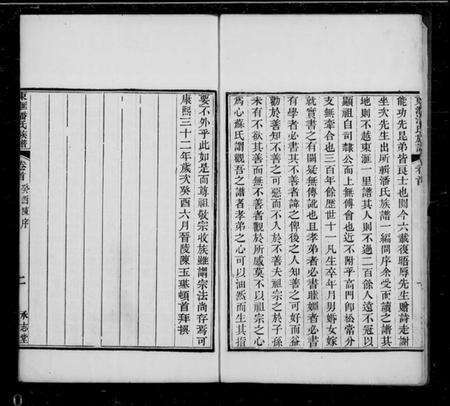 能功先是弟皆良士也閱今六載復晤辱先生贈詩走謝
坐次先生出所輯潘氏族譜一編問序余受而讀之譜其
地則不越東滙一里譜其人則不過二百餘人遠不冠以
顯祖自司隸公而上無傳會也近不附乎高門卽松常分
支無牽合也三百年餘歷世十一凡生卒年月男婚女嫁
就實書之有闕疑無傳訛也且孝弟者必書睢婣者必書
有學者必書其不善者諱之俾後之人知善之可好而益
勸於善知不善之可惡而不入於不善夫祖宗之於子孫
未有不欲其善而無不善者觀於所感莫不以祖宗之心
爲心蘇氏謂觀吾之譜者孝弟之心可以油然而生其指
要不外乎此如是而尊祖敬宗收族雖謂宗法尚存焉可
康熙三十二年歲次癸酉六月晉陵陳玉璂頓首拜撰
東滙潘氏族譜
卷首
癸酉陳序
二
承志堂